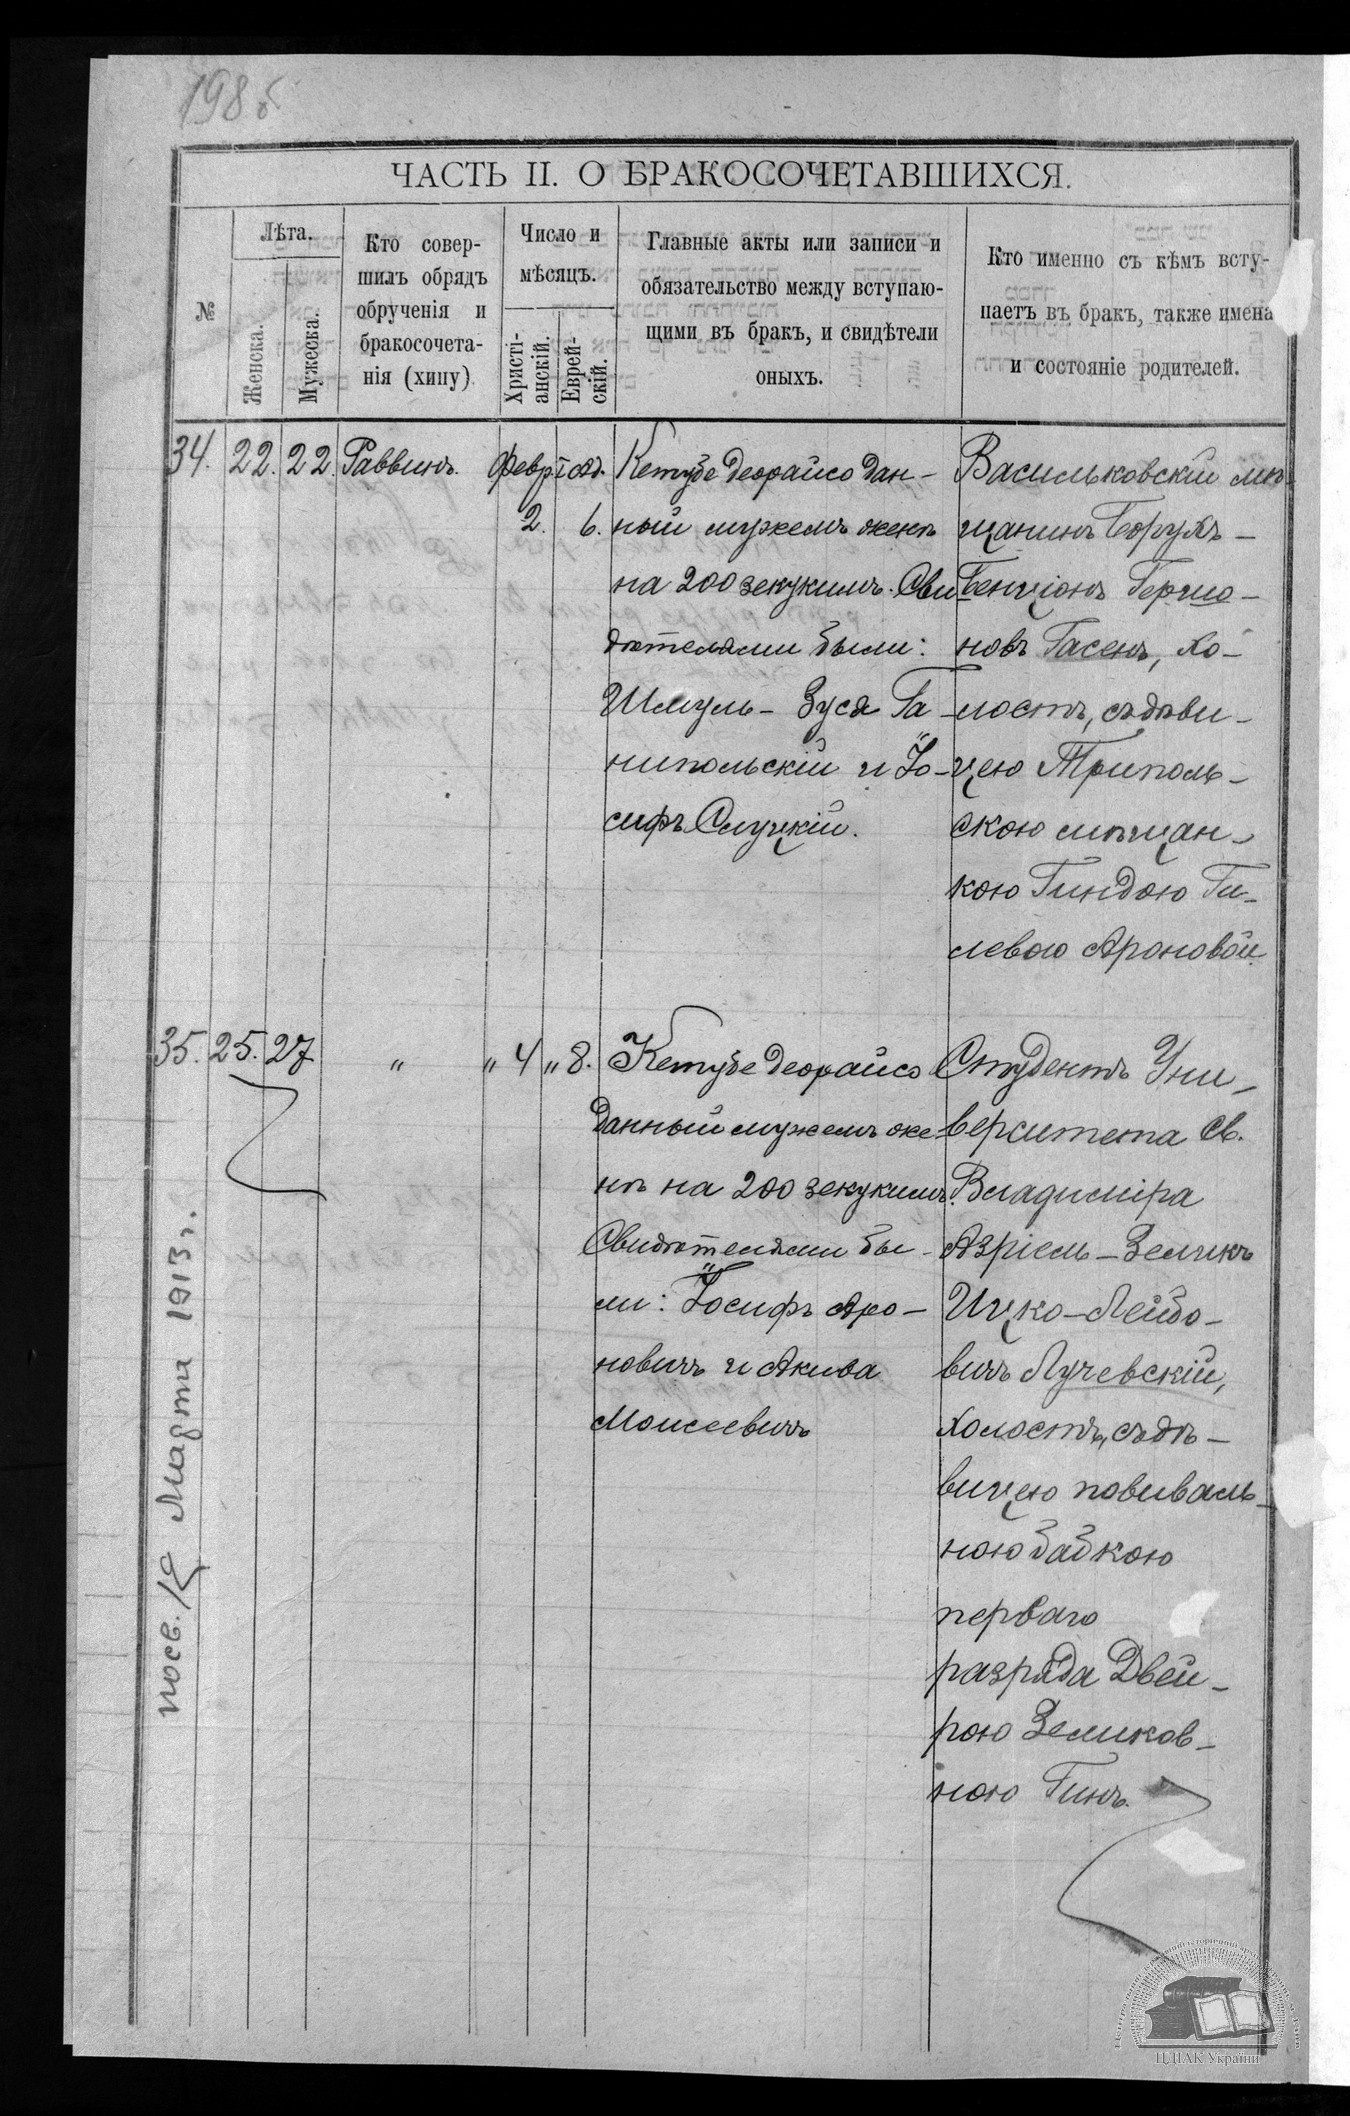 198 б
ЧАСТЬ II. О БРАКОСОЧЕТАВШИХСЯ.
№
Лѣта.
Женска.
Мужеска.
Кто совер-
шилъ обрядъ
обрученія и
бракосочета-
нія (хипу)
Число и
мѣсяцъ.
Христі-
анскій.
Еврей-
скій.
Главные акты или записи и
обязательство между вступаю-
щими въ бракъ, и свидѣтели
оныхъ.
Кто именно съ кѣмъ всту-
паетъ въ бракъ, также имена
и состояніе родителей.
34. 22. 22. Раввинъ. Февр
2. 6.
Кетубе деорайсо дан-
ный мужемъ женѣ
на 200 зекукимъ. Сви
дѣтелями были:
Шмуль- Зуся Га-
нипольскій и Іо-
сифъ Слуцкій.
Васильковскій мѣ-
щанинъ Борухъ-
Бенціонъ Гершо-
новъ Гасенъ, хо-
лостъ, съ дѣви-
цею Триполь-
скою мѣщан-
кою Гиндою Ги-
левою Ароновой
35. 25. 27 „ „ 4 „ 8.
Кетубе деорайсо
данный мужемъ же-
нѣ на 200 зекукимъ.
Свидѣтелями бы-
ли: Іосифъ Аро-
новичъ и Акива
Моисеевичъ
Студентъ Уни-
верситета Св.
Владиміра
Азріель-Зеликъ
Ицко-Лейбо-
вичъ Лучевскій,
холостъ, съ дѣ-
вицею повиваль-
ною бабкою
перваго
разряда Двей-
рою Зеликов-
ною Гинъ.
Марта 1913 г.
ЦДІАК України